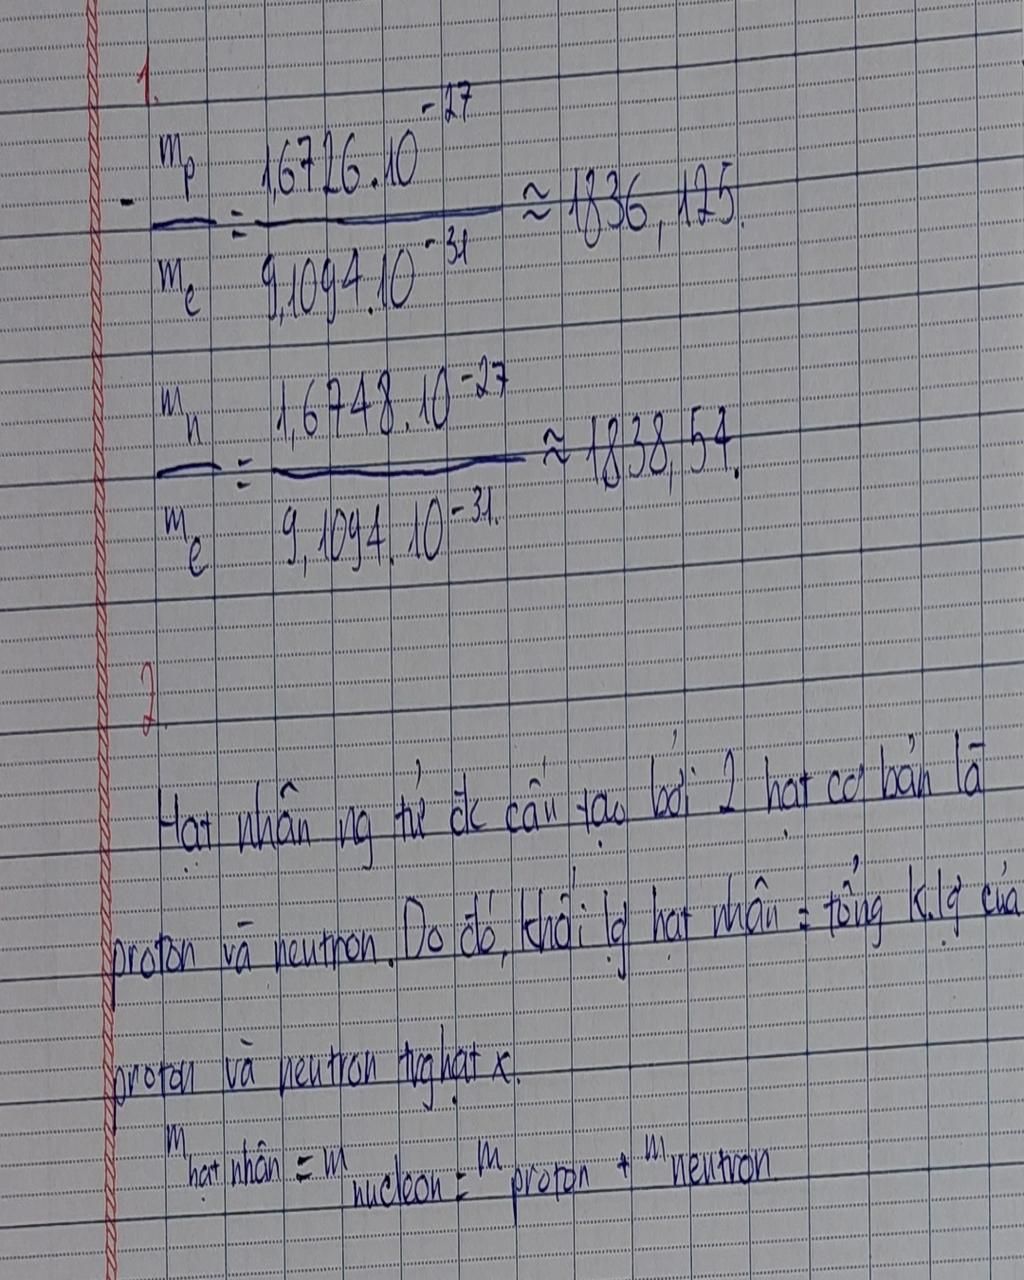 1.
- mp/me = 1,6726.10^-27 / 9,1094.10^-31 ≈ 1836,125.
mn/me = 1,6748.10^-27 / 9,1094.10^-31. ≈ 1838,54.
2
Hạt nhân ng tử đc cấu tạo bởi 2 hạt cơ bản là
proton và neutron. Do đó, khối lg hạt nhân = tổng k.lg của
proton và neutron trg hạt x.
m hạt nhân = m nucleon = m proton + m neutron